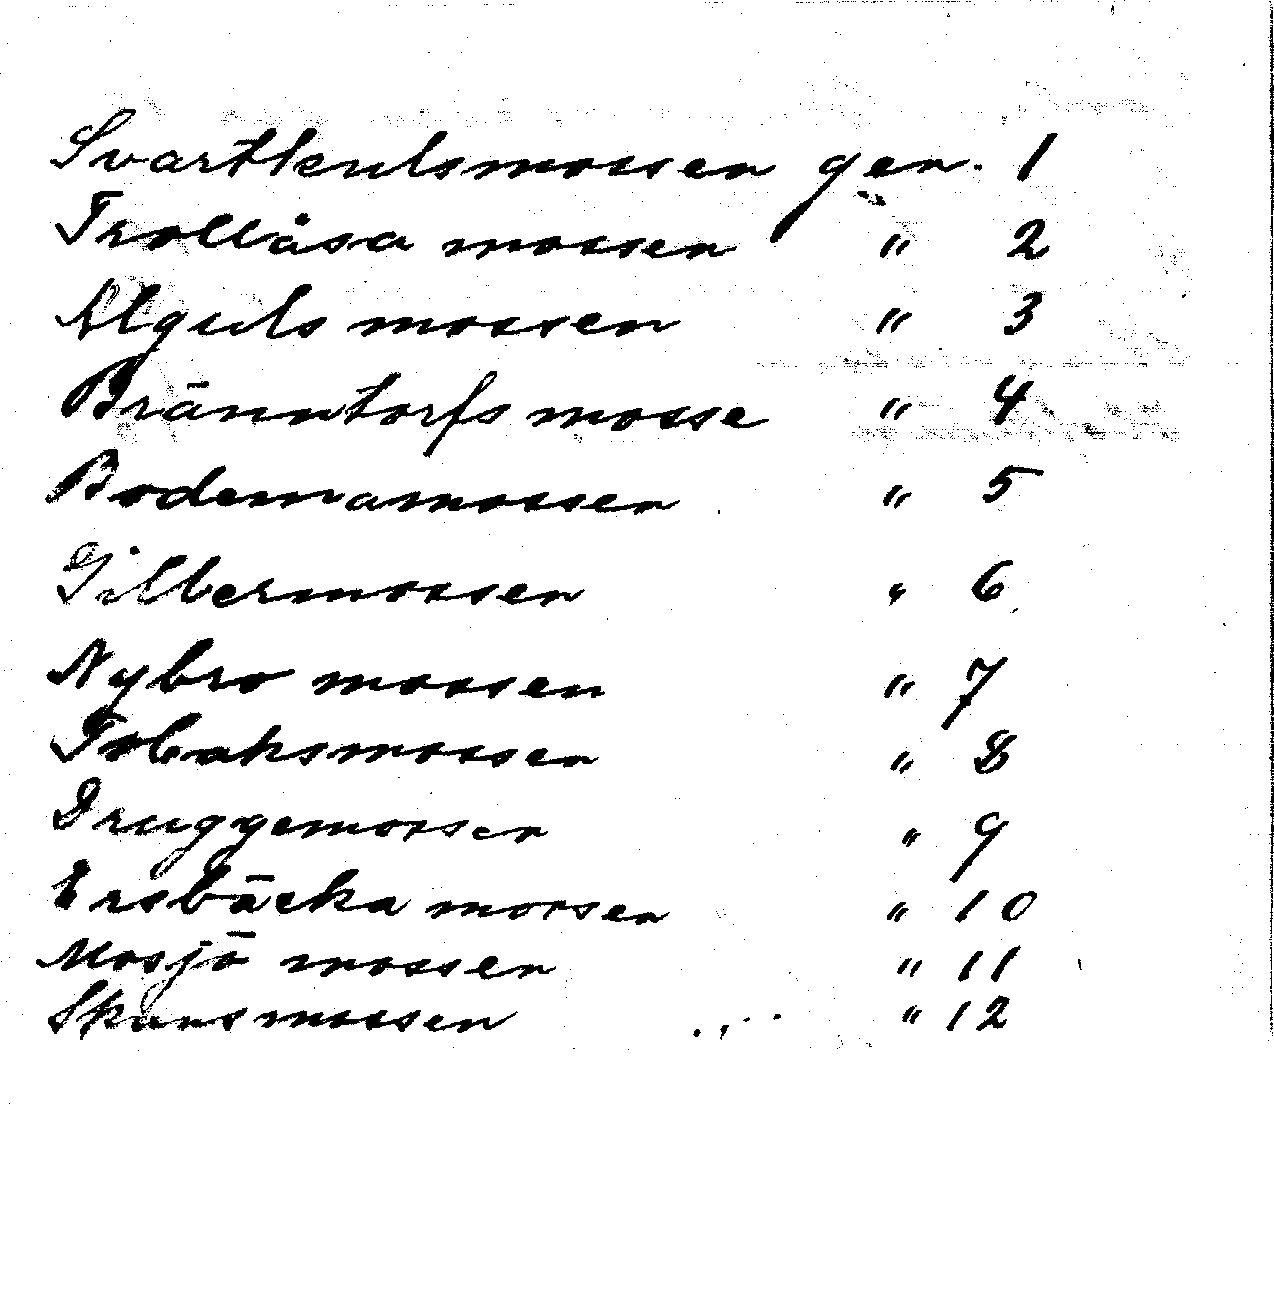 Svartkulsmossen gen. 1
Trollåsa mossen " 2
Älguls mossen " 3
Bränntorfs mosse " 4
Bodemamossen " 5
Gilbermossen " 6
Nybro mossen " 7
Tobaksmossen " 8
Druggemossen " 9
Ersbäcka mossen " 10
Mosjö mossen " 11
Skansmossen " 12